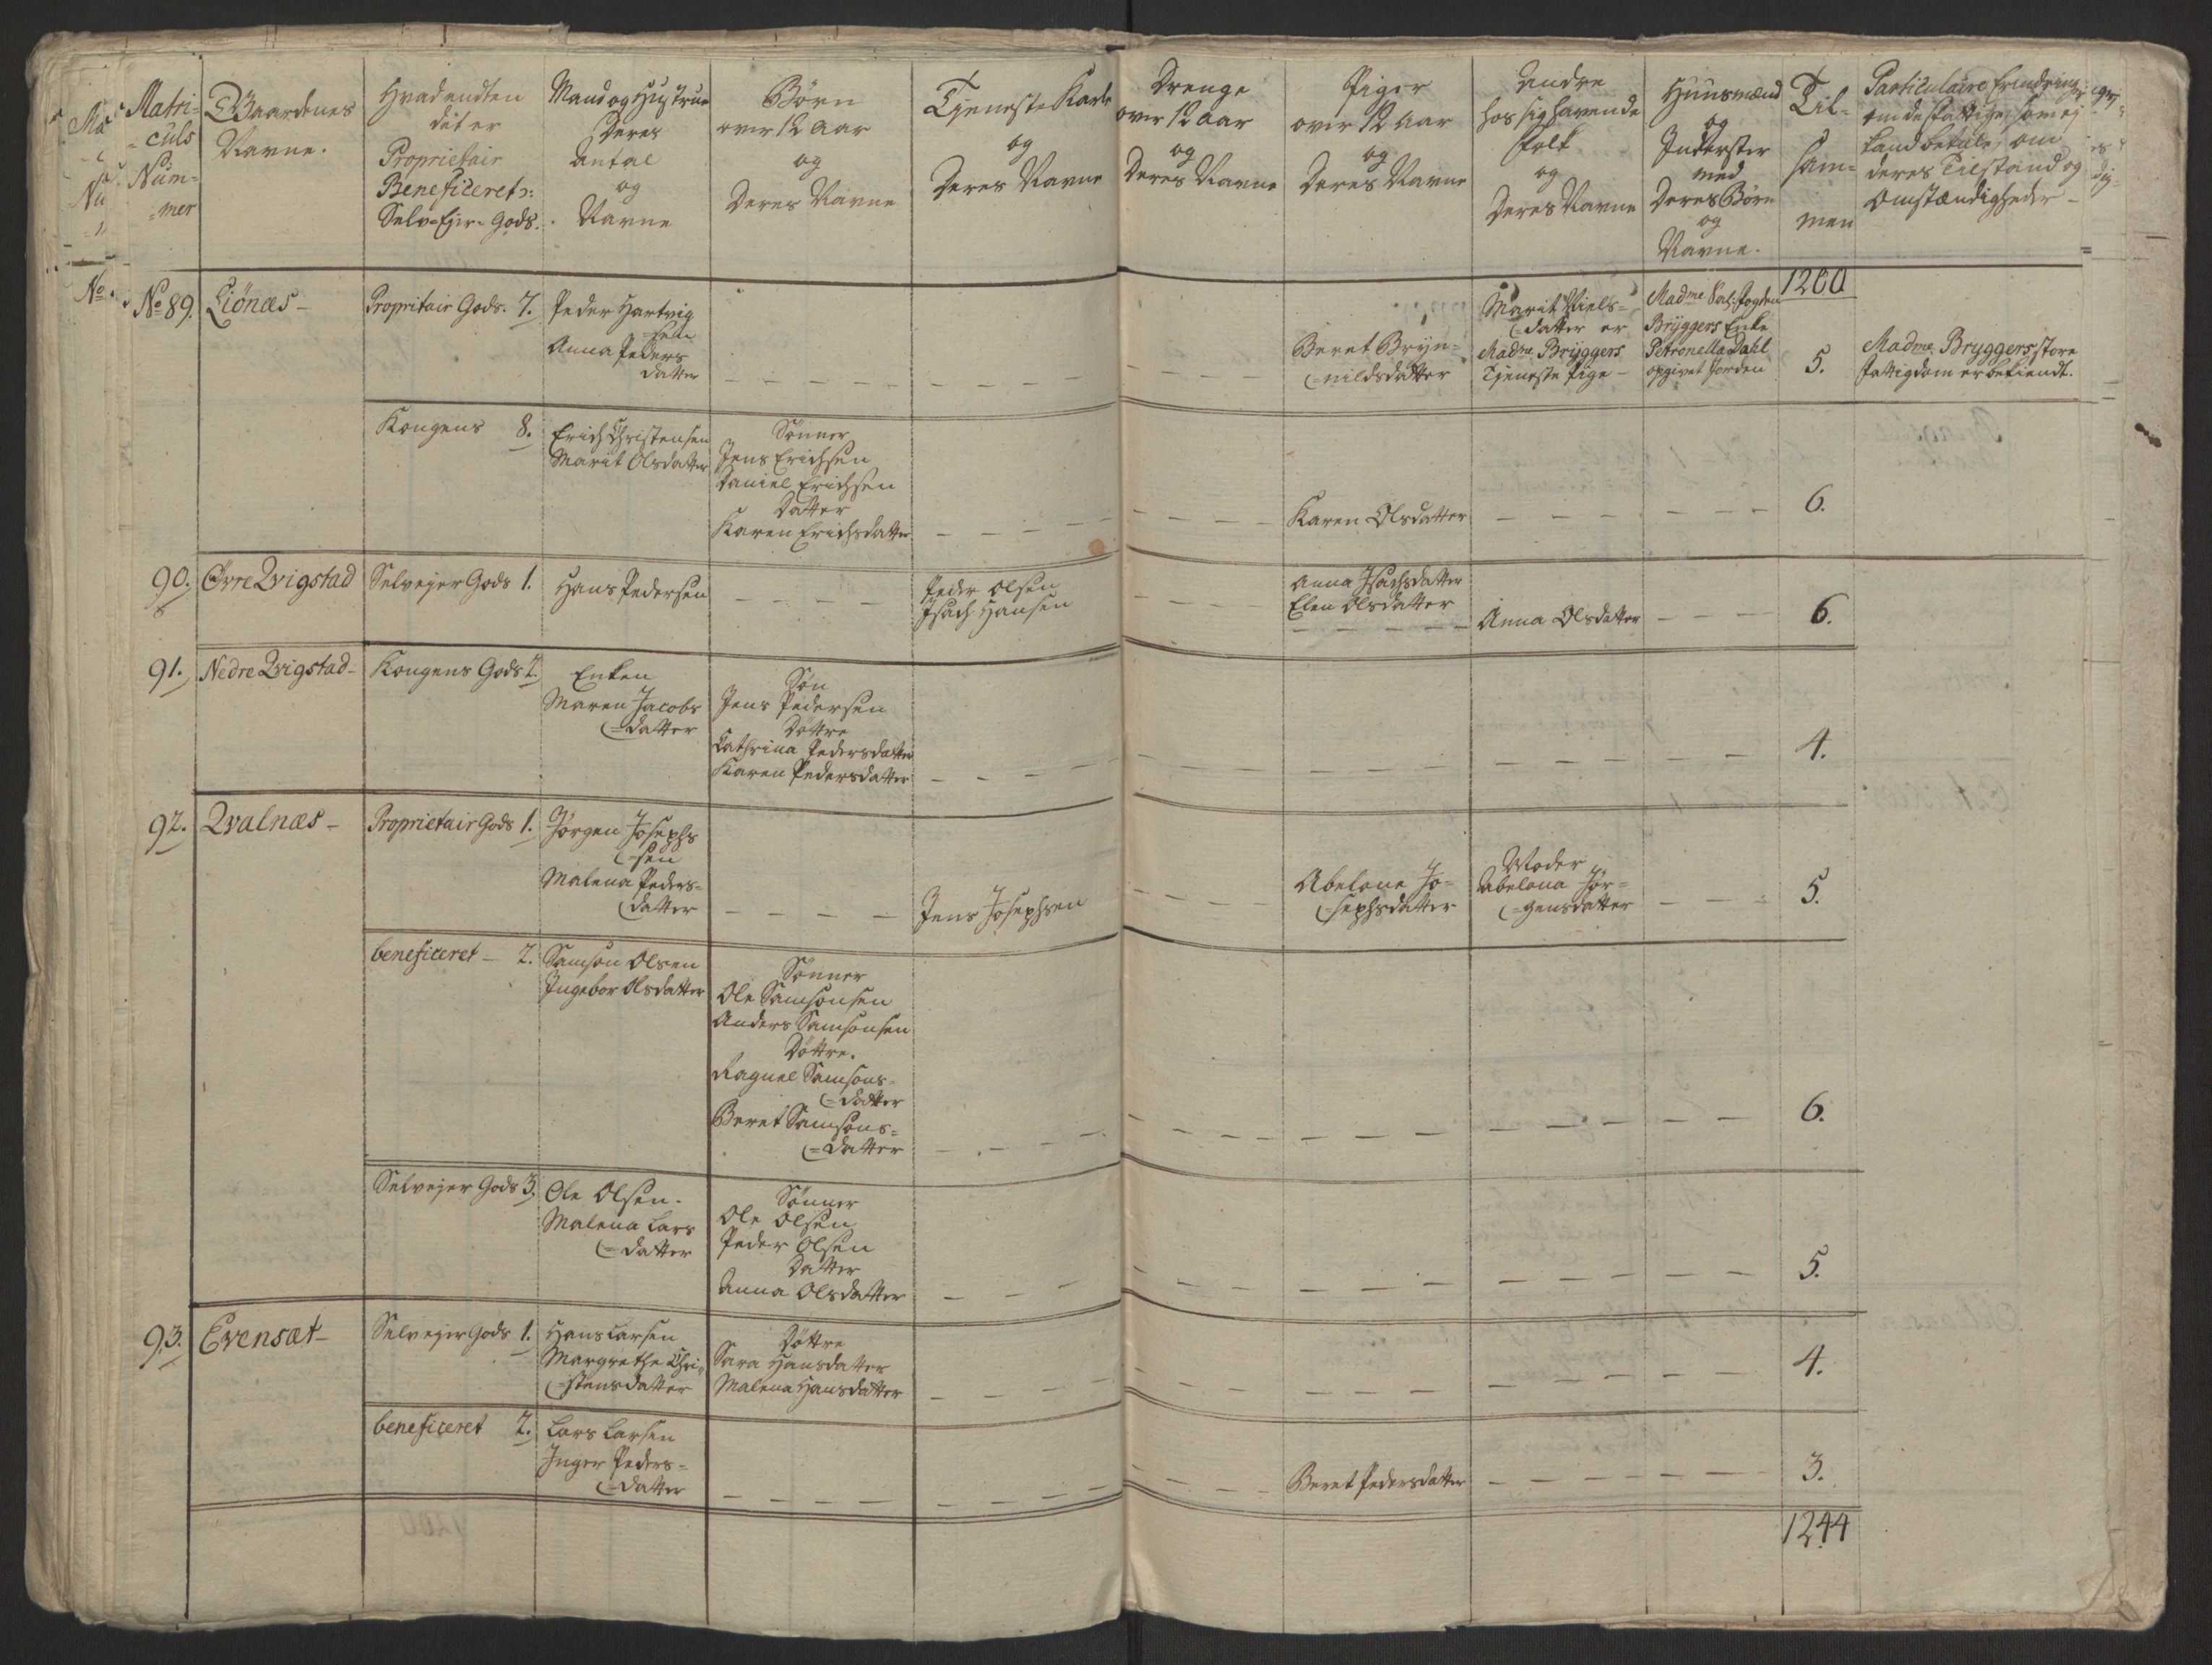 Matri-
=culs
Num-
=mer
Gaardenes
Navne.
Hvad endten
det er
Proprietair
Beneficeret ɔ:
Selv=Ejer=Gods.
Mand og Hustrue
Deres
Antal
og
Navne
Børn
over 12 Aar
og
Deres Navne
Tjeneste Karle
og
Deres Navne
Drenge
over 12 Aar
og
Deres Navne
Piger
over 12 Aar
og
Deres Navne
Andre
hos sig havende
Folk
og
Deres Navne
Huusmænd
og
Inderster
med
Deres Børn
og
Navne.
Til-
sam-
men
Particulaire Erindring
om de fattige, som ej
Land betale, om
deres Tilstand og
Omstændigheder -
No. 89. Liönæs -
Propritair Gods. 7.
Peder Hartvig
=sen
Anna Peders
datter
Beret Bryn=
=nildsdatter
Marit Niels=
=datter er
Madme. Bryggers
Tjeneste Pige -
Madme Sal: Fogden
Bryggers Enke
Petronella Dahl
opgivet Jorden
1200
5.
Madme. Bryggers store
Fattigdom er bekiendt.
Kongens 8.
Erich Christensen
Marit Olsdatter
Sönner
Jens Erichsen
Daniel Erichsen
Datter
Karen Erichsdatter
Karen Olsdatter
6.
90. Øvre Qvigstad
Selvejer Gods 1.
Hans Pedersen
Peder Olsen
Isach Hansen
Anna Isachsdatter
Elen Olsdatter
Anna Olsdatter
6.
91. Nedre Qvigstad -
Kongens Gods 2.
Enken
Maren Jacobs
=datter
Søn
Jens Pedersen
Döttre
Cathrina Pedersdatter
Karen Pedersdatter
4.
92. Qvalnæs -
Proprietair Gods 1.
Jørgen Josephs
=sen
Malena Peders=
datter
Jens Josephsen
Abelone Jo=
=sephsdatter
Moder
Abelona Jør=
=gensdatter
5.
beneficeret - 2.
Samson Olsen
Ingebor Olsdatter
Sönner
Ole Samsonsen
Anders Samsonsen
Döttre.
Ragnel Samsons=
=datter
Beret Samsons=
=datter
6.
Selvejer Gods 3.
Ole Olsen.
Malena Lars
=datter
Sönner
Ole Olsen
Peder Olsen
Datter
Anna Olsdatter
5.
93. Evensæt -
Selvejer Gods 1.
Hans Larsen
Margrethe Chri=
=stensdatter
Döttre
Sara Hansdatter
Malena Hansdatter
4.
beneficeret 2.
Lars Larsen
Inger Peders=
=datter
Beret Pedersdatter
3.
1244